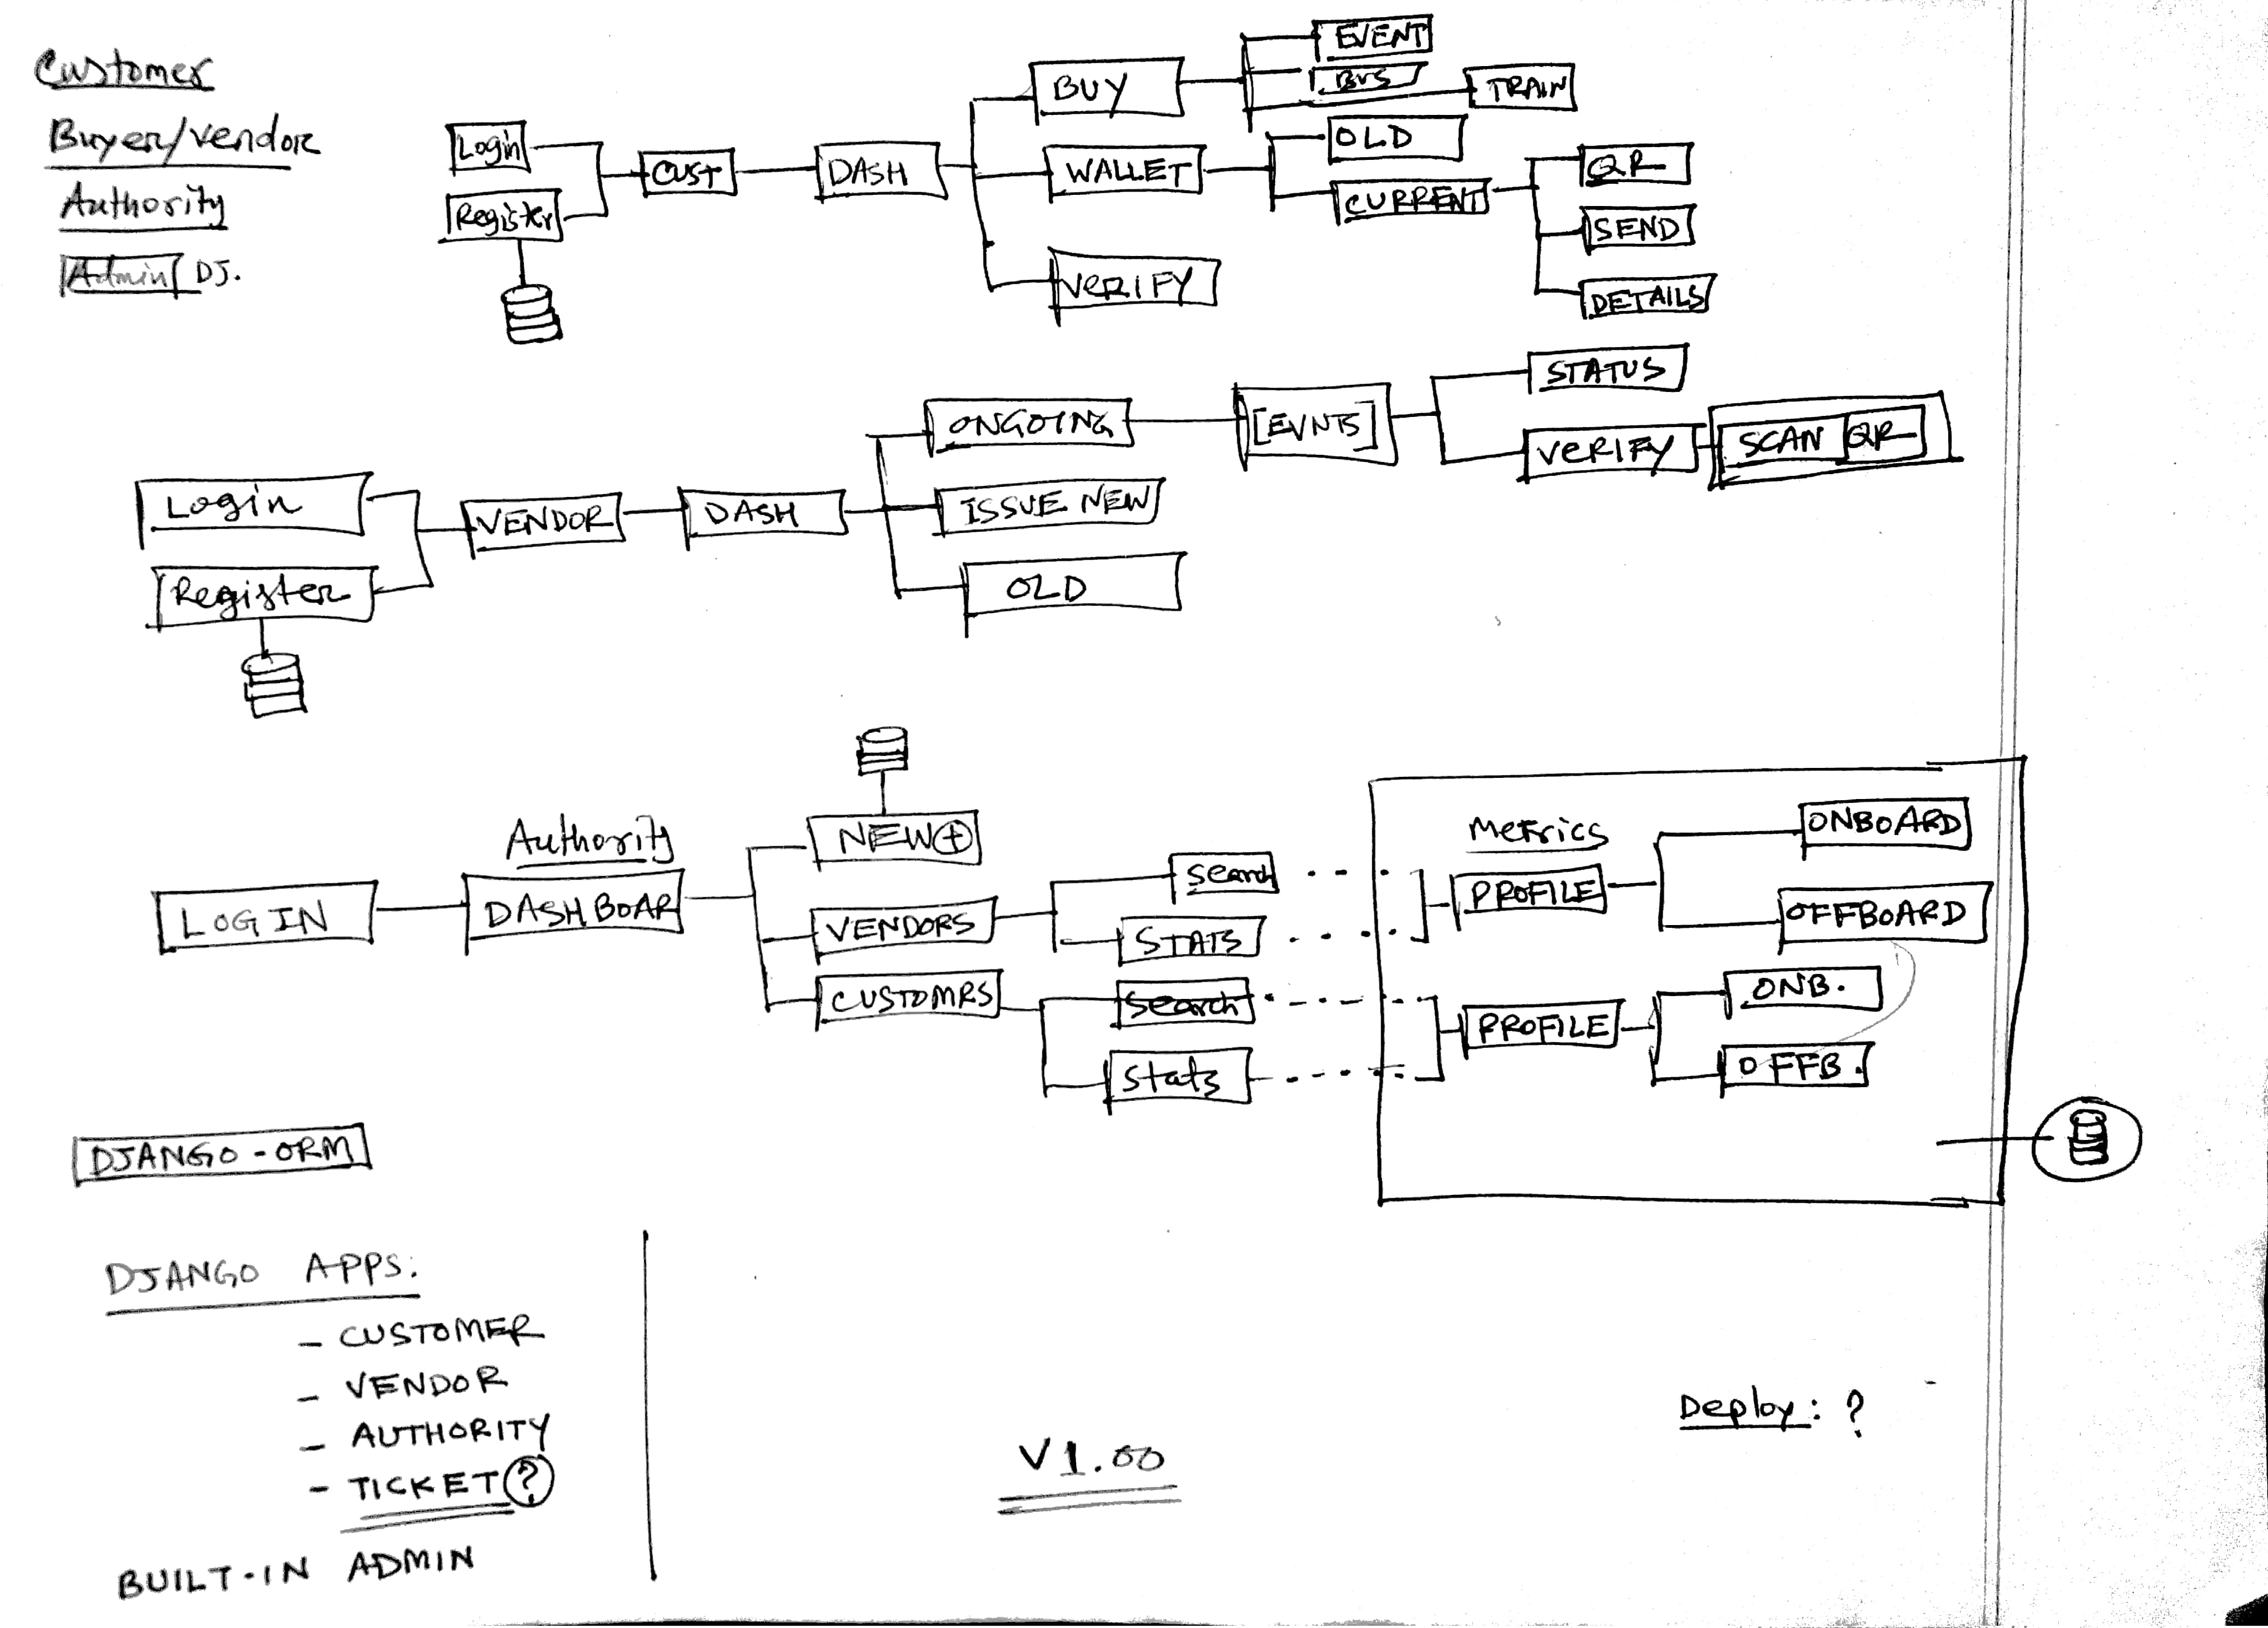 Customer
Buyer/vendor
Authority
Admin DJ.
Login
Register
CUST
DASH
BUY
EVENT
BUS
TRAIN
WALLET
OLD
CURRENT
QR
SEND
DETAILS
VERIFY
Login
Register
VENDOR
DASH
ONGOING
[EVNTS]
STATUS
VERIFY
SCAN QR
ISSUE NEW
OLD
LOGIN
Authority
DASHBOAR
NEW +
VENDORS
search
STATS
CUSTOMRS
search
Stats
Metrics
PROFILE
ONBOARD
OFFBOARD
PROFILE
ONB.
OFFB.
DJANGO - ORM
DJANGO APPS:
- CUSTOMER
- VENDOR
- AUTHORITY
- TICKET ?
BUILT-IN ADMIN
V 1.00
Deploy: ?